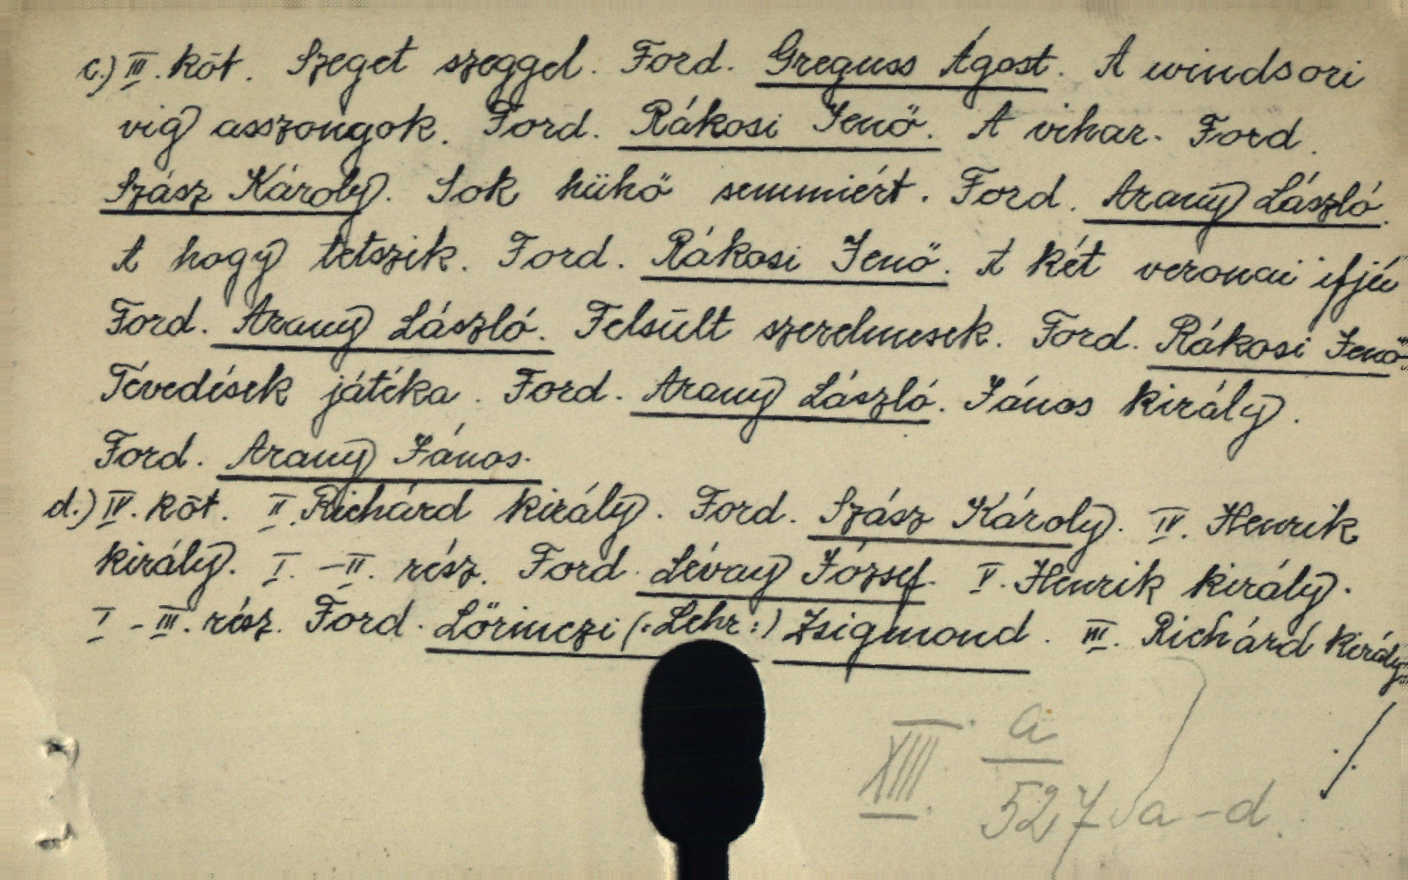 c.) III. köt. Szeget szeggel. Ford. Greguss Ágost. A windsori
vig asszonyok. Ford. Rákosi Jenő. A vihar. Ford.
Szász Károly. Sok hühó semmiért. Ford. Arany László.
A hogy tetszik. Ford. Rákosi Jenő. A két veronai ifjú
Ford. Arany László. Felsült szerelmesek. Ford. Rákosi Jenő.
Tévedések játéka. Ford. Arany László. János király.
Ford. Arany János.
d.) IV. köt. II. Richárd király. Ford. Szász Károly. IV. Henrik
király. I. - II. rész. Ford. Lévay József. V. Henrik király.
I - III. rész. Ford. Lőrinczi (:Lehr:) Zsigmond. III. Richárd király.
./.
XIII. a
527 a - d.